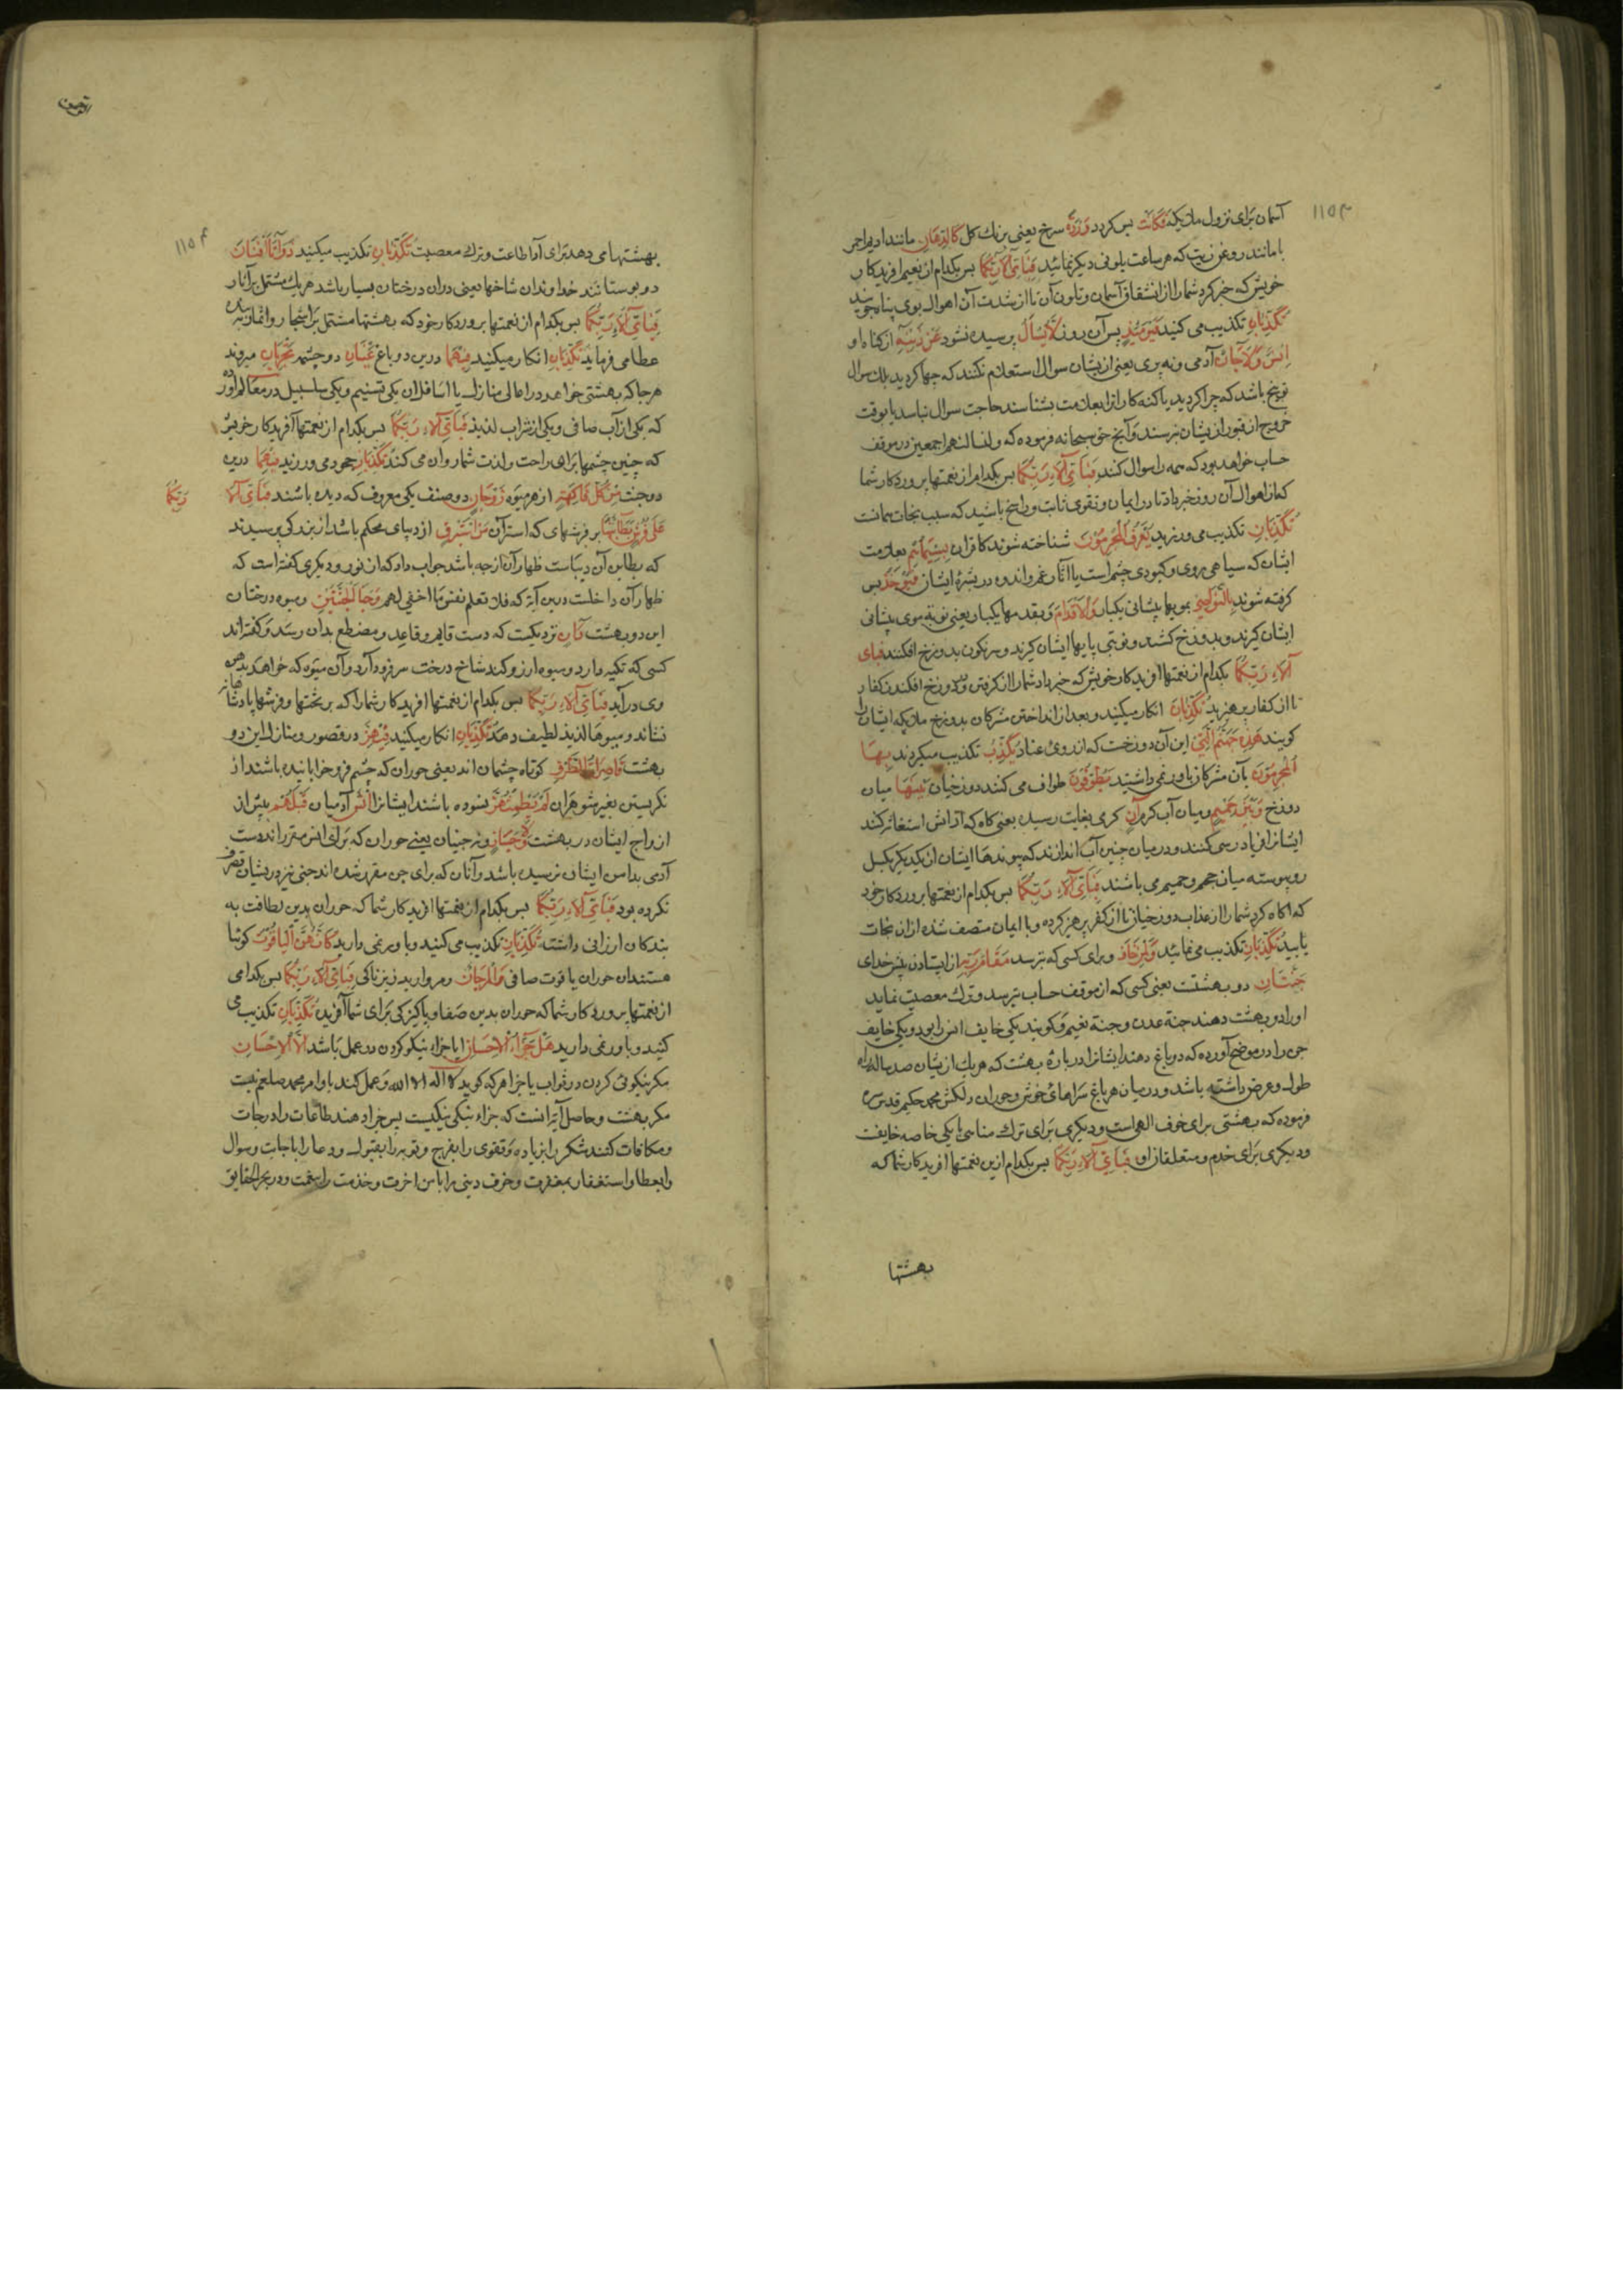 ١١٥٣
آسمان برای نزول ملائکه فَكَانَتْ پس کردد وَرْدَةً سرخ یعنی برنك کل كَالدِّهَانِ مانند ادیم احمر
یا مانند روغن زیت که هر ساعت بلونی دیگر نماید فَبِأَيِّ آلَاءِ رَبِّكُمَا پس بکدام از نعیم افریدکار
خویش که خبر کرد شما را از انشقاق آسمان و تلون آن تا از شدت آن اهوال بوی پناه جویید
تُكَذِّبَانِ تکذیب می کنید فَيَوْمَئِذٍ پس آن روز لَا يُسْأَلُ پرسیده نشود عَنْ ذَنْبِهِ از کناه او
إِنْسٌ وَلَا جَانٌّ آدمی و نه پری یعنی ازیشان سوال استعلام نکنند که چها کردید بلك سوال
توبیخ باشد که چرا کردید یا کنه کارانرا بعلامت بشناسند حاجت سوال نباسد یا بوقت
خروج از قبور ازیشان نپرسند و آنچ حق سبحانه فرموده که ولنسالنهم اجمعین در موقف
حساب خواهد بود که همه را سوال کنند فَبِأَيِّ آلَاءِ رَبِّكُمَا پس بکدام از نعمتها پروردکار شما
که از اهوال آن روز خبر داد تا در ایمان و تقوی ثابت و راسخ باشید که سبب نجات همانست
تُكَذِّبَانِ تکذیب می ورزید يُعْرَفُ الْمُجْرِمُونَ شناخته شوند کافران بِسِيمَاهُمْ بعلامت
ایشان که سیاهی روی و کبودی چشم است یا آثار غم و اندوه در بشرۀ ایشان فَيُؤْخَذُ پس
کرفته شوند بِالنَّوَاصِي بمویها پیشانی یکبار وَالْأَقْدَامِ و بقدمها یکبار یعنی نوبة موی پیشانی
ایشان کیرند و بدوزخ کشند و نوبتی پایها ایشان کیرند و سرنکون بدوزخ افکنند فَبِأَيِّ
آلَاءِ رَبِّكُمَا بکدام از نعمتها افریدکار خویش که خبر داد شما را از کرفتن و در دوزخ افکندن کفار
تا از کفار پرهیزید تُكَذِّبَانِ انکار میکنید و بعد از انداختن مشرکان بدوزخ ملائکه ایشان را
کویند هَذِهِ جَهَنَّمُ الَّتِي این آن دوزخست که از روی عناد يُكَذِّبُ تکذیب میکردند بِهَا
الْمُجْرِمُونَ بآن مشرکان باور نمی داشتید يَطُوفُونَ طواف می کنند دوزخیان بَيْنَهَا میان
دوزخ وَبَيْنَ حَمِيمٍ و میان آب کرم آنٍ کرمی بغایت رسیده یعنی کاه که از آتش استغاثه کنند
ایشانرا فریاد رسی کنند و در میان چنین آب اندازند که پیوندها ایشان از یکدیکر بکسل
و پیوسته میان جحیم و حمیم می باشند فَبِأَيِّ آلَاءِ رَبِّكُمَا پس بکدام از نعمتها پروردکار خود
که اکاه کرد شما را از عذاب دوزخیان تا از کفر پرهیز کرده و با ایمان متصف شده از ان نجات
یابید تُكَذِّبَانِ تکذیب می نمائید وَلِمَنْ خَافَ و برای کسی که بترسد مَقَامَ رَبِّهِ از ایستادن پیش خدای
جَنَّتَانِ دو بهشتست یعنی کسی که از موقف حساب بترسد و ترك معصیت نماید
اورا دو بهشت دهند جنة عدن و جنة نعیم و کویند یکی خایف انس را بود و یکی خایف
جن را در موضح آورده که دو باغ دهند ایشانرا در بارۀ بهشت که هر یك ازیشان صد ساله راه
طول و عرض داشته باشد و در میان هر باغ سراهای خوش و حوران دلکش محمد حکیم قدس سره
فرموده که بهشتی برای خوف الهی است و دیکری برای ترك مناسی یا یکی خاصه خایفست
و دیکری برای خدم و متعلقان او فَبِأَيِّ آلَاءِ رَبِّكُمَا پس بکدام ازین نعمتها افریدکار شما که
بهشتها
١١٥٤
بهشتها می دهد برای آدا طاعت و ترك معصیت تُكَذِّبَانِ تکذیب میکنید ذَوَاتَا أَفْنَانٍ
دو بوستانند خداوندان شاخها یعنی دران درختان بسیار باشد هریك مشتمل بر آثار
فَبِأَيِّ آلَاءِ رَبِّكُمَا پس بکدام از نعمتها پروردکار خود که بهشتها مشتمل بر اشجار و اثمار بنده
عطا می فرماید تُكَذِّبَانِ انکار میکنید فِيهِمَا درین دو باغ عَيْنَانِ دو چشمه تَجْرِيَانِ میروند
هرجا که بهشتی خواهد در اعالی منازل یا اسافل ان یکی تسنیم و یکی سلسبیل در معالم آورده
که یکی از آب صافی و یکی از شراب لذیذ فَبِأَيِّ آلَاءِ رَبِّكُمَا پس بکدام از نعمتها آفریدکار خویش
که چنین چشمها برای راحت و لذت شما روان می کند تُكَذِّبَانِ جحود می ورزید فِيهِمَا درین
دو جنت مِنْ كُلِّ فَاكِهَةٍ از هر میوه زَوْجَانِ دو صنف یکی معروف که دیده باشند فَبِأَيِّ آلَاءِ رَبِّكُمَا
عَلَى فُرُشٍ بَطَائِنُهَا بر فرشهای که استر آن مِنْ إِسْتَبْرَقٍ از دیبای محکم باشد از بزرکی پرسیدند
که بطاین آن دیباست ظهار آن از چه باشد جواب داد که از نور و دیکری کفته است که
ظهار آن داخلست درین آیة که فلا تعلم نفس ما اخفی لهم وَجَنَا الْجَنَّتَيْنِ و میوه درختان
این دو بهشت دَانٍ نزدیکست که دست قایم و قاعد و مضطجع بدان رسد و کفته اند
کسی که تکیه دارد و میوه ارزو کند شاخ درخت سر فرود آرد و آن میوه که خواهد بدهن
وی در آید فَبِأَيِّ آلَاءِ رَبِّكُمَا پس بکدام از نعمتها افریدکار شما را که بر تختها و فرشها پادشاهانه
نشاند و میوها لذیذ لطیف دهد تُكَذِّبَانِ انکار میکنید فِيهِنَّ در قصور و منازل این دو
بهشت قَاصِرَاتُ الطَّرْفِ کوتاه چشمان اند یعنی حوران که چشم فرو خوابانیده باشند از
نکریستن بغیر شوهران لَمْ يَطْمِثْهُنَّ نسوده باشند ایشانرا إِنْسٌ آدمیان قَبْلَهُمْ پیش از
ازواج ایشان در بهشت وَلَا جَانٌّ و نه جنیان یعنی حوران که برای انس مقرراند دست
آدمی بدامن ایشان نرسیده باشد و آنان که برای جن مقرر شده اند جنی نیز دریشان تصرف
نکرده بود فَبِأَيِّ آلَاءِ رَبِّكُمَا پس بکدام از نعمتها افریدکار شما که حوران بدین لطافت به
بندکان ارزانی داشته تُكَذِّبَانِ تکذیب می کنید و باور نمی دارید كَأَنَّهُنَّ الْيَاقُوتُ کوئیا
هستند ان حوران یاقوت صافی وَالْمَرْجَانُ و مروارید فَبِأَيِّ آلَاءِ رَبِّكُمَا پس بکدامی
از نعمتها پروردکار شما که حوران بدین صفا و پاکیزکی برای شما آفریده تُكَذِّبَانِ تکذیب می
کنید و باور نمی دارید هَلْ جَزَاءُ الْإِحْسَانِ ایا جزاء نیکو کردن در عمل باشد إِلَّا الْإِحْسَانُ
مکر نیکوئی کردن در ثواب یا جزا هر که کوید لا اله الا الله و عمل کند باوامر محمد صلعم نیست
مکر بهشت و حاصل آیه آنست که جزاء نیکی نیکیست پس جزا دهند طاعات را درجات
و مکافات کنند شکر را بزیاده و تقوی را بفرج و توبه را بقبول و دعا را باجابت و سوال
را بعطا و استغفار بمغفرت و خوف دینی را بامن اخرت و خدمت را بنعمت و در بحر الحقایق